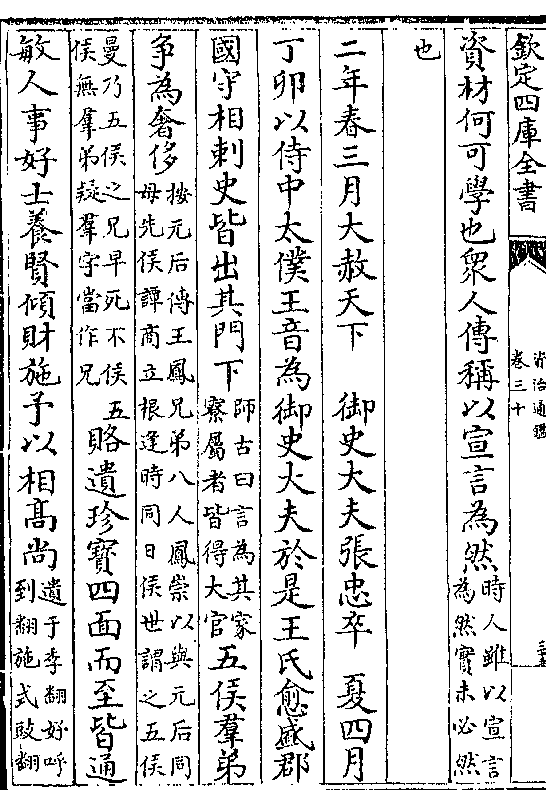 欽定四庫全書
資治通鑑
卷三十
資材何可學也衆人傳稱以宣言為然時人雖以宣言
為然實未必然
也
二年春三月大赦天下　御史大夫張忠卒　夏四月
丁卯以侍中太僕王音為御史大夫於是王氏愈盛郡
國守相刺史皆出其門下師古曰言為其家
寮屬者皆得大官五侯羣弟
争為奢侈按元后傳王鳳兄弟八人鳳崇以與元后同
母先侯譚商立根逢時同日侯世謂之五侯
曼乃五侯之兄早死不侯五
侯無羣弟疑羣字當作兄賂遺珍寳四面而至皆通
敏人事好士養賢傾財施予以相髙尚遺于季翻好呼
到翻施式䜴翻